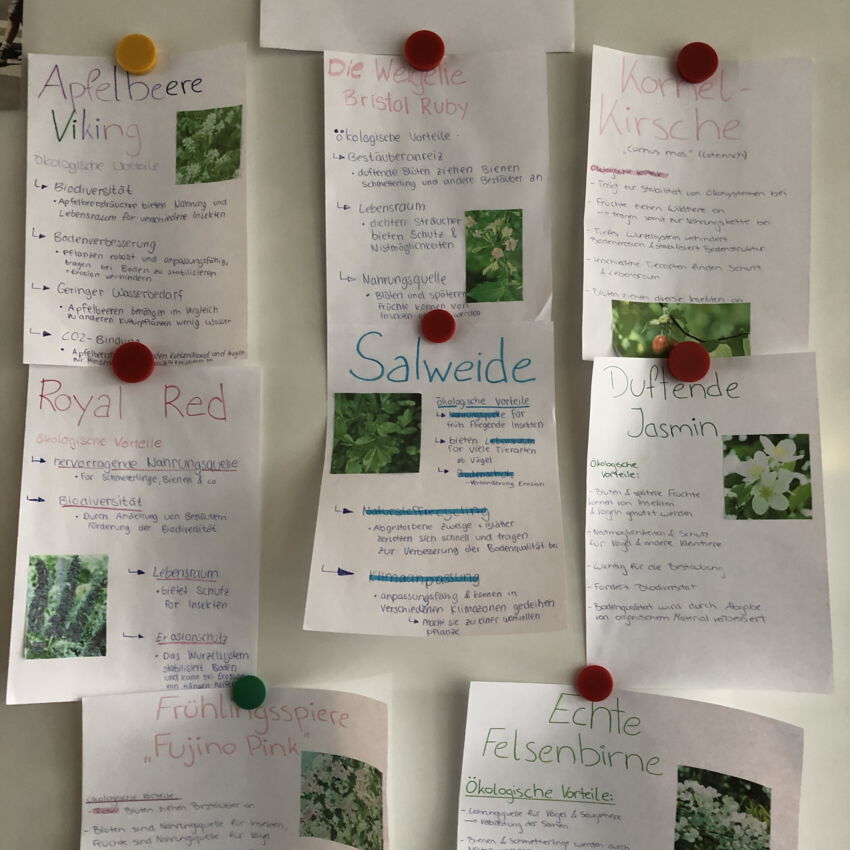 Apfelbeere
Viking
Ökologische Vorteile
Biodiversität
• Apfelbeersträucher bieten Nahrung und
Lebensraum für verschiedene Insekten
Bodenverbesserung
• Pflanzen robust und anpassungsfähig,
tragen bei Boden zu stabilisieren
+ Erosion verhindern
Geringer Wasserbedarf
• Apfelbeeren benötigen im Vergleich
zu anderen Kulturpflanzen wenig Wasser
CO2-Bindung
Die Weigelie
Bristol Ruby
ökologische Vorteile:
Bestäuberanreiz
• duftende Blüten ziehen Bienen
Schmetterling und andere Bestäuber an
Lebensraum
• dichten Sträucher
bieten Schutz &
Nistmöglichkeiten
Nahrungsquelle
• Blüten und spätere
Früchte können von
Insekten werden
Kornel-
Kirsche
"Cornus mas" (lateinisch)
Ökologische Vorteile:
- Trägt zur Stabilität von Ökosystemen bei
- Früchte ziehen Wildtiere an
→ tragen somit zur Nahrungskette bei
- Tiefes Wurzelsystem verhindert
Bodenerosion & stabilisiert Bodenstruktur
- verschiedene Tierarten finden Schutz
& Lebensraum
- Blüten ziehen diverse Insekten an
Royal Red
ökologische Vorteile
hervorragende Nahrungsquelle
• für Schmetterlinge, Bienen & co
Biodiversität
• Durch Anziehung von Bestäubern
Förderung der Biodiversität
Lebensraum
• bietet Schutz
für Insekten
Erosionschutz
• Das Wurzelsystem
stabilisiert Boden
und kann bei Erosion
von Hängen helfen
Salweide
ökologische Vorteile
Nahrungsquelle für
früh fliegende Insekten
bieten Lebensraum
für viele Tierarten
zb Vögel
Bodenschutz
- Verhinderung Erosion
Naturstoffrecycling
• Abgestorbene Zweige + Blätter
zersetzen sich schnell und tragen
zur Verbesserung der Bodenqualität bei
Klimaanpassung
• anpassungsfähig & können in
verschiedenen Klimazonen gedeihen
Macht sie zu einer wertvollen
pflanze
Duftende
Jasmin
Ökologische
Vorteile:
- Blüten & spätere Früchte
können von Insekten
& Vögeln genutzt werden
- Nistmöglichkeiten & Schutz
für Vögel & andere Kleintiere
- Wichtig für die Bestäubung
- Fördert Biodiversität
- Bodenqualität wird durch Abgabe
von organischem Material verbessert
Frühlingsspiere
„Fujino Pink"
Ökologische Vorteile
- Blüten ziehen Bestäuber an
- Blüten sind Nahrungsquelle für Insekten,
Früchte sind Nahrungsquelle für Vögel
Echte
Felsenbirne
Ökologische Vorteile:
- Nahrungsquelle für Vögel & Säugetiere
→ Verbreitung der Samen
- Bienen & Schmetterlinge werden durch